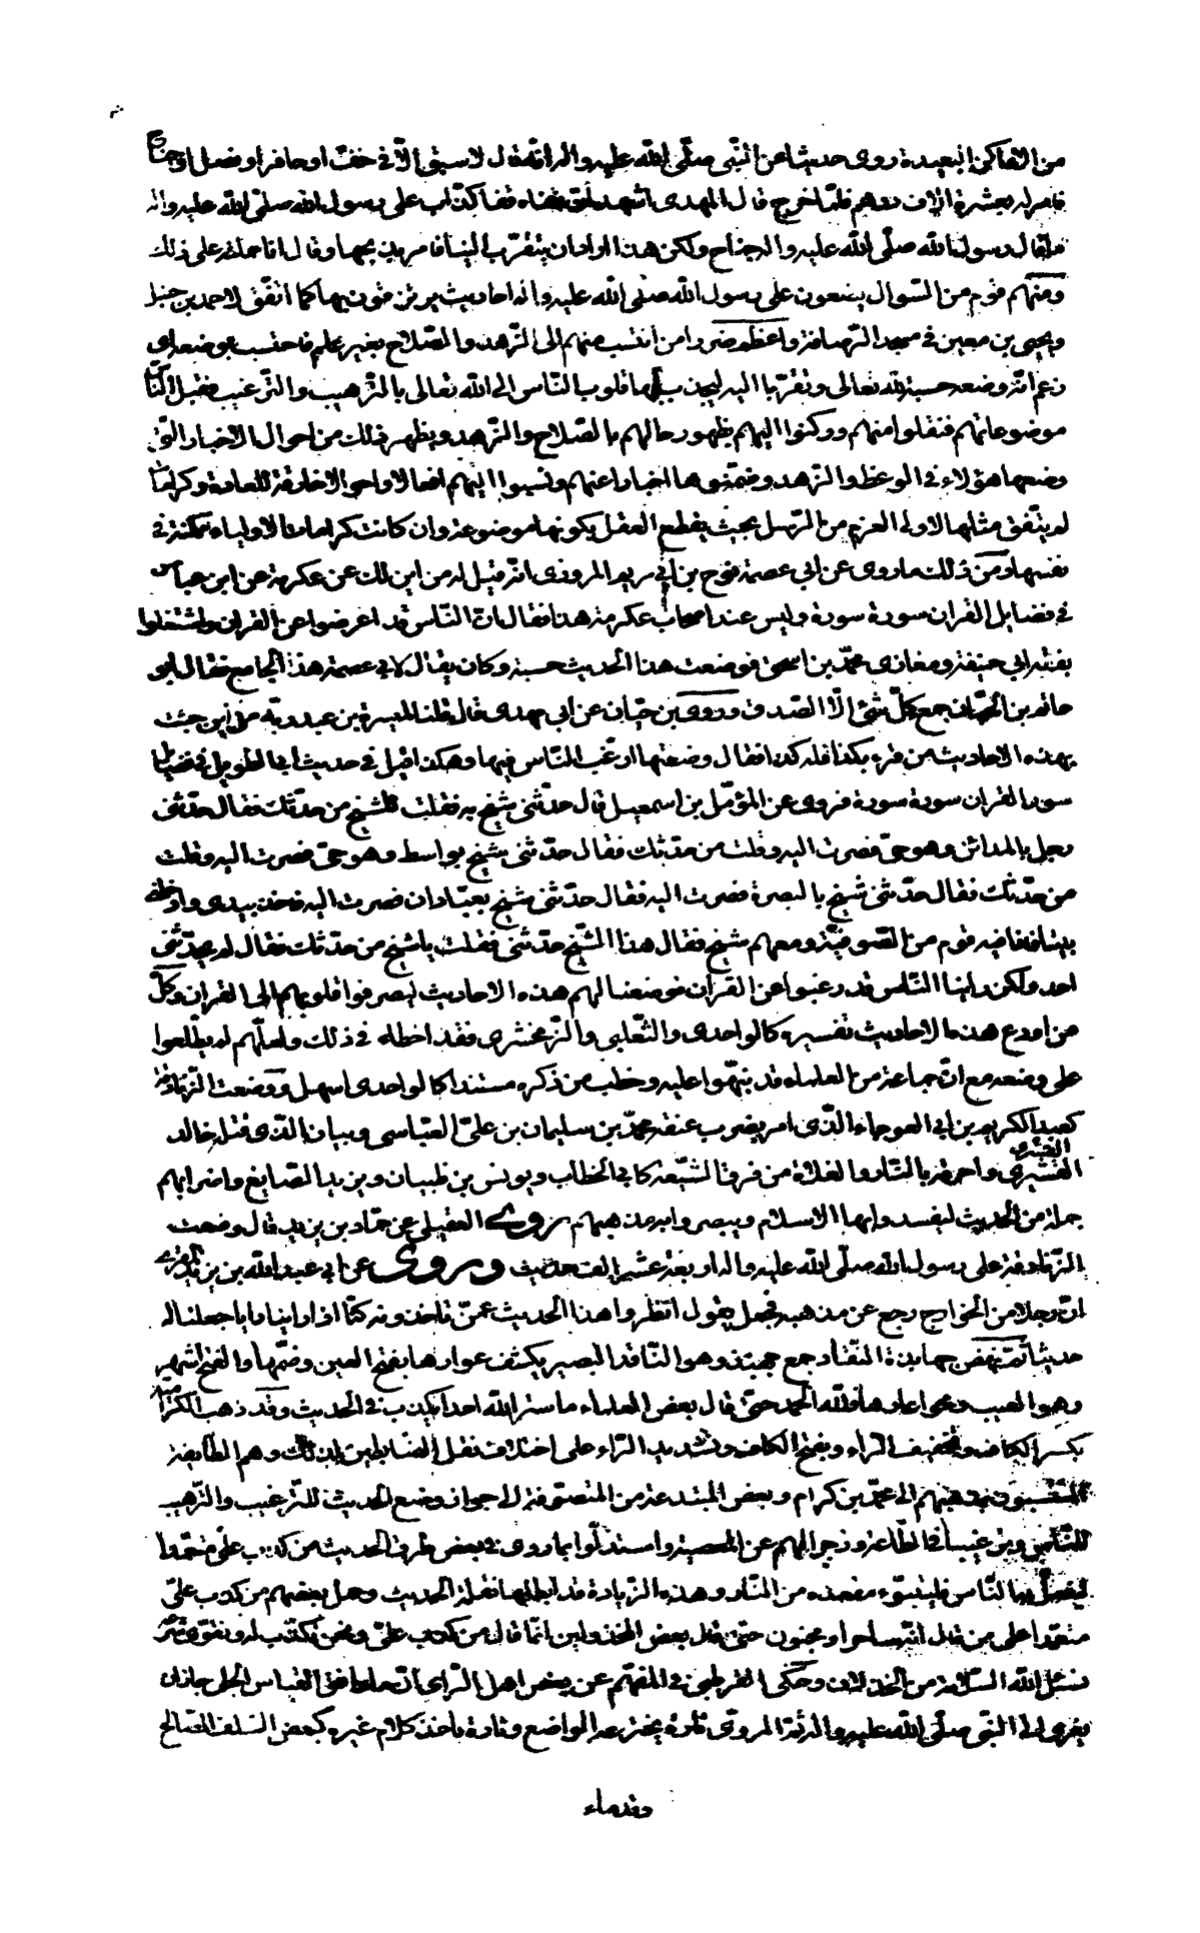 من الاماكن البعيدة روى حديثا عن النبى صلّى الله عليه واله انّه قال لا سبق الّا فى خفّ او حافر او نصل او جناح
فامر له بعشرة الاف درهم فلمّا خرج قال المهدى اشهد انّ قفاه قفا كذّاب على رسول الله صلّى الله عليه واله
ما قال رسول الله صلّى الله عليه واله جناح ولكن هذا اراد ان يتقرّب الينا فامر بذبحها وقال انا حملته على ذلك
ومنهم قوم من السّوال يضعون على رسول الله صلى الله عليه واله احاديث يرتزقون بها كما اتّفق لاحمد بن حنبل
ويحيى بن معين فى مسجد الرّصافة واعظمهم ضررا من انتسب منهم الى الزّهد والصّلاح بغير علم فاحتسب بوضعه اى
زعم انّه وضعه حسبة لله تعالى وتقرّبا اليه ليجذب بها قلوب النّاس الى الله تعالى بالتّرهيب والتّرغيب فقبل النّاس
موضوعاتهم ثقة منهم وركنوا اليهم لظهور حالهم بالصّلاح والزّهد ويظهر ذلك من احوال الاخبار التى
وضعها هؤلاء فى الوعظ والزّهد وضمّنوها اخبارا عنهم ونسبوا اليهم افعالا واحوالا خارقة للعادة وكرامات
لم يتّفق مثلها لاولى العزم من الرّسل بحيث يقطع العقل بكونها موضوعة وان كانت كرامات الاولياء ممكنة فى
نفسها ومن ذلك ما روى عن ابى عصمة نوح بن ابى مريم المروزى انّه قيل له من اين لك عن عكرمة عن ابن عباس
فى فضايل القران سورة سورة وليس عند اصحاب عكرمة هذا فقال انّ النّاس قد اعرضوا عن القران واشتغلوا
بفقه ابى حنيفة ومغازى محمّد بن اسحق فوضعت هذا الحديث حسبة وكان يقال لابى عصمة هذا الجامع فقال ابو
حاتم بن حبّان جمع كلّ شئ الّا الصّدق وروى بن حبّان عن ابى مهدى قال قلنا لميسرة بن عبد ربّه من اين جئت
بهذه الاحاديث من قرء بكذا فله كذا فقال وضعتها ارغّب النّاس فيها وهكذا قيل فى حديث ابى الطويل فى فضايل
سور القران سورة سورة فروى عن المؤمّل بن اسمعيل قال حدّثنى شيخ به فقلت للشيخ من حدّثك فقال حدّثنى
رجل بالمدائن وهو حىّ فصرت اليه وقلت من حدثك فقال حدّثنى شيخ بواسط وهو حىّ فصرت اليه وقلت
من حدّثك فقال حدّثنى شيخ بالبصرة فصرت اليه فقال حدّثنى شيخ بعبّادان فصرت اليه فاخذ بيدى وادخلنى
بيتا فاذا فيه قوم من الصّوفيّة ومعهم شيخ فقال هذا الشّيخ حدّثنى فقلت يا شيخ من حدّثك فقال لم يحدّثنى
احد ولكن راينا النّاس قد رغبوا عن القران فوضعنا لهم هذه الاحاديث ليصرفوا قلوبهم الى القران وكلّ
من اودع هذه الاحاديث تفسيره كالواحدى والثّعلبى والزّمخشرى فقد اخطاء فى ذلك ولعلّهم لم يطّلعوا
على وضعه مع انّ جماعة من العلماء قد نبّهوا عليه وخطب من ذكره مستندا كالواحدى اسهل ووضعت الزّنادقة
كعبد الكريم بن ابى العوجاء الّذى امر بضرب عنقه محمّد بن سليمان بن علىّ العبّاسى وبيان الّذى قتله خالد
القسرى
القشيرى واحرقه بالنّار والغلاة من فرق الشّيعه كابى الخطاب ويونس بن ظبيان ويزيد الصّايغ واضرابهم
جملة من الحديث ليفسد وابها الاسلام وينصروا به مذهبهم روى العقيلى عن حمّاد بن زيد قال وضعت
الزّنادقة على رسول الله صلّى الله عليه واله اربعة عشر الف حديث وروى عن ابى عبد الله بن يزيد المقرى
انّ رجلا من الخوارج رجع عن مذهبه فجعل يقول انظروا هذا الحديث عمّن تاخذونه كنّا اذا راينا رايا جعلنا له
حديثا ثمّ نهض جهابذة النقّاد جمع جهبذ وهو النّاقد البصير بكشف عوارها بفتح العين وضمّها والفتح اشهر
وهو العيب ومحوا عارها ولله الحمد حتّى قال بعض العلماء ما ستر الله احدا يكذب فى الحديث وقد ذهب الكرّاميّة
بكسر الكاف وتخفيف الرّاء وبفتح الكاف وتشديد الرّاء على اختلاف نقل الضّابطين لذلك وهم الطّايفة
المنتسبون بمذهبهم الى محمّد بن كرام وبعض المبتدعة من المتصوّفة الى جواز وضع الحديث للتّرغيب والتّرهيب
للنّاس وترغيبا فى الطّاعة وزجرا لهم عن المعصية واستدلّوا بما روى فى بعض طرق الحديث من كذب علىّ متعمّدا
ليضلّ به النّاس فليتبوّء مقعده من النّار وهذه الزّيادة قد ابطلها نقلة الحديث وحمل بعضهم من كذب علىّ
متعمّدا على من قال انّه ساحر او مجنون حتى قال بعض المخذولين انّما قال من كذب علىّ ونحن نكذب له ونقوّى شرعه
نسئل الله السّلامة من الخذلان وحكى القرطبى فى المفهم عن بعض اهل الرّاى انّ ما وافق القياس الجلى جاز ان
يعزى الى النّبى صلّى الله عليه واله ثمّ المروىّ تارة يخترعه الواضع وتارة ياخذ كلام غيره كبعض السّلف الصّالح
وقدماء